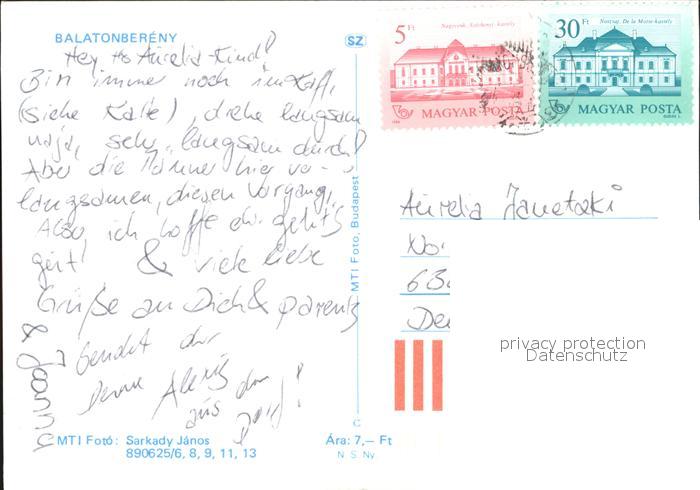 BALATONBERÉNY
SZ
Hey Aurelia Kind!
Bin immer noch im Kaff,
(siehe Karte), drehe langsam
naja, sehr langsam durch!
Aber die Männer hier ver-
langsamen, diesen Vorgang,
Also ich hoffe dir geht's
gut! & viele liebe
Grüße an Dich & parents
sendet dir
deine Alexis
aus dem
Dorf!
& Joanna
MTI Fotó: Sarkady János
890625/6, 8, 9, 11, 13
Ára: 7,– Ft
N. S. Ny
MTI Foto, Budapest
C
5 Ft
Nagycenk, Széchenyi-kastély
MAGYAR POSTA
30 Ft
Noszvaj, De la Motte-kastély
MAGYAR POSTA
Aurelia Janetzki
No
63
De
privacy protection
Datenschutz